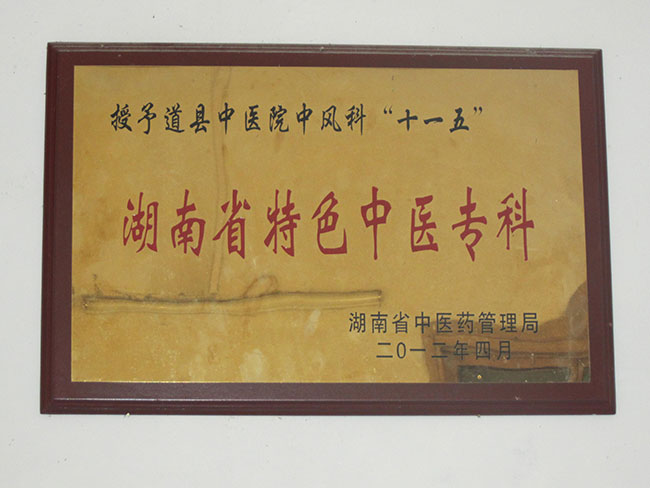 授予道县中医院中风科“十一五”
湖南省特色中医专科
湖南省中医药管理局
二〇一二年四月